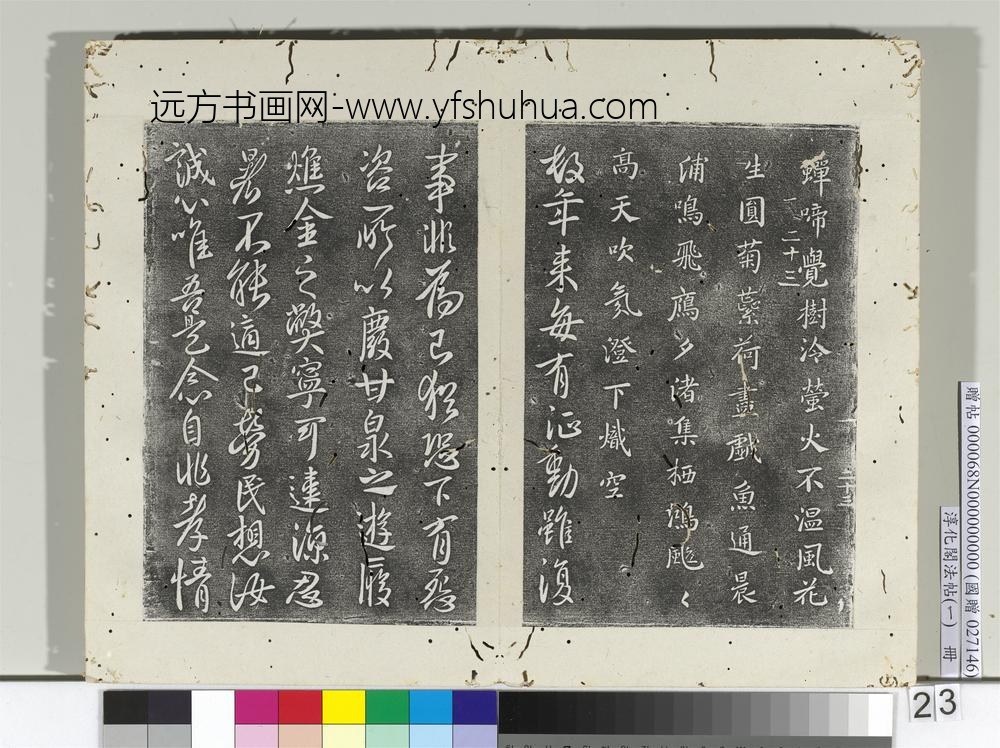 远方书画网-www.yfshuhua.com
蟬啼覺樹冷螢火不温風花
生圓菊蘂荷盡戲魚通晨
浦鳴飛鴈夕渚集栖鴻颸〻
高天吹氛澄下熾空
数年来每有征動雖復
事非為己猶恐下有怨
咨所以廢甘泉之遊履
燋金之弊寧可違涼忍
暑不能適己勞民想汝
誠心唯吾是念自非孝情
一 二十三
贈帖 0000068N000000000 (國贈 027146)
淳化閣法帖(一) 冊
23